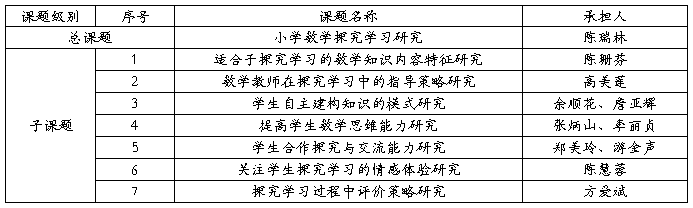 课题级别 序号 课题名称 承担人
总课题 小学数学探究学习研究 陈瑞林
子课题 1 适合于探究学习的数学知识内容特征研究 陈珊芬
2 数学教师在探究学习中的指导策略研究 高美莲
3 学生自主建构知识的模式研究 余顺花、詹亚辉
4 提高学生数学思维能力研究 张炳山、李丽贞
5 学生合作探究与交流能力研究 郑美玲、游金声
6 关注学生探究学习的情感体验研究 陈慧蓉
7 探究学习过程中评价策略研究 方爱斌